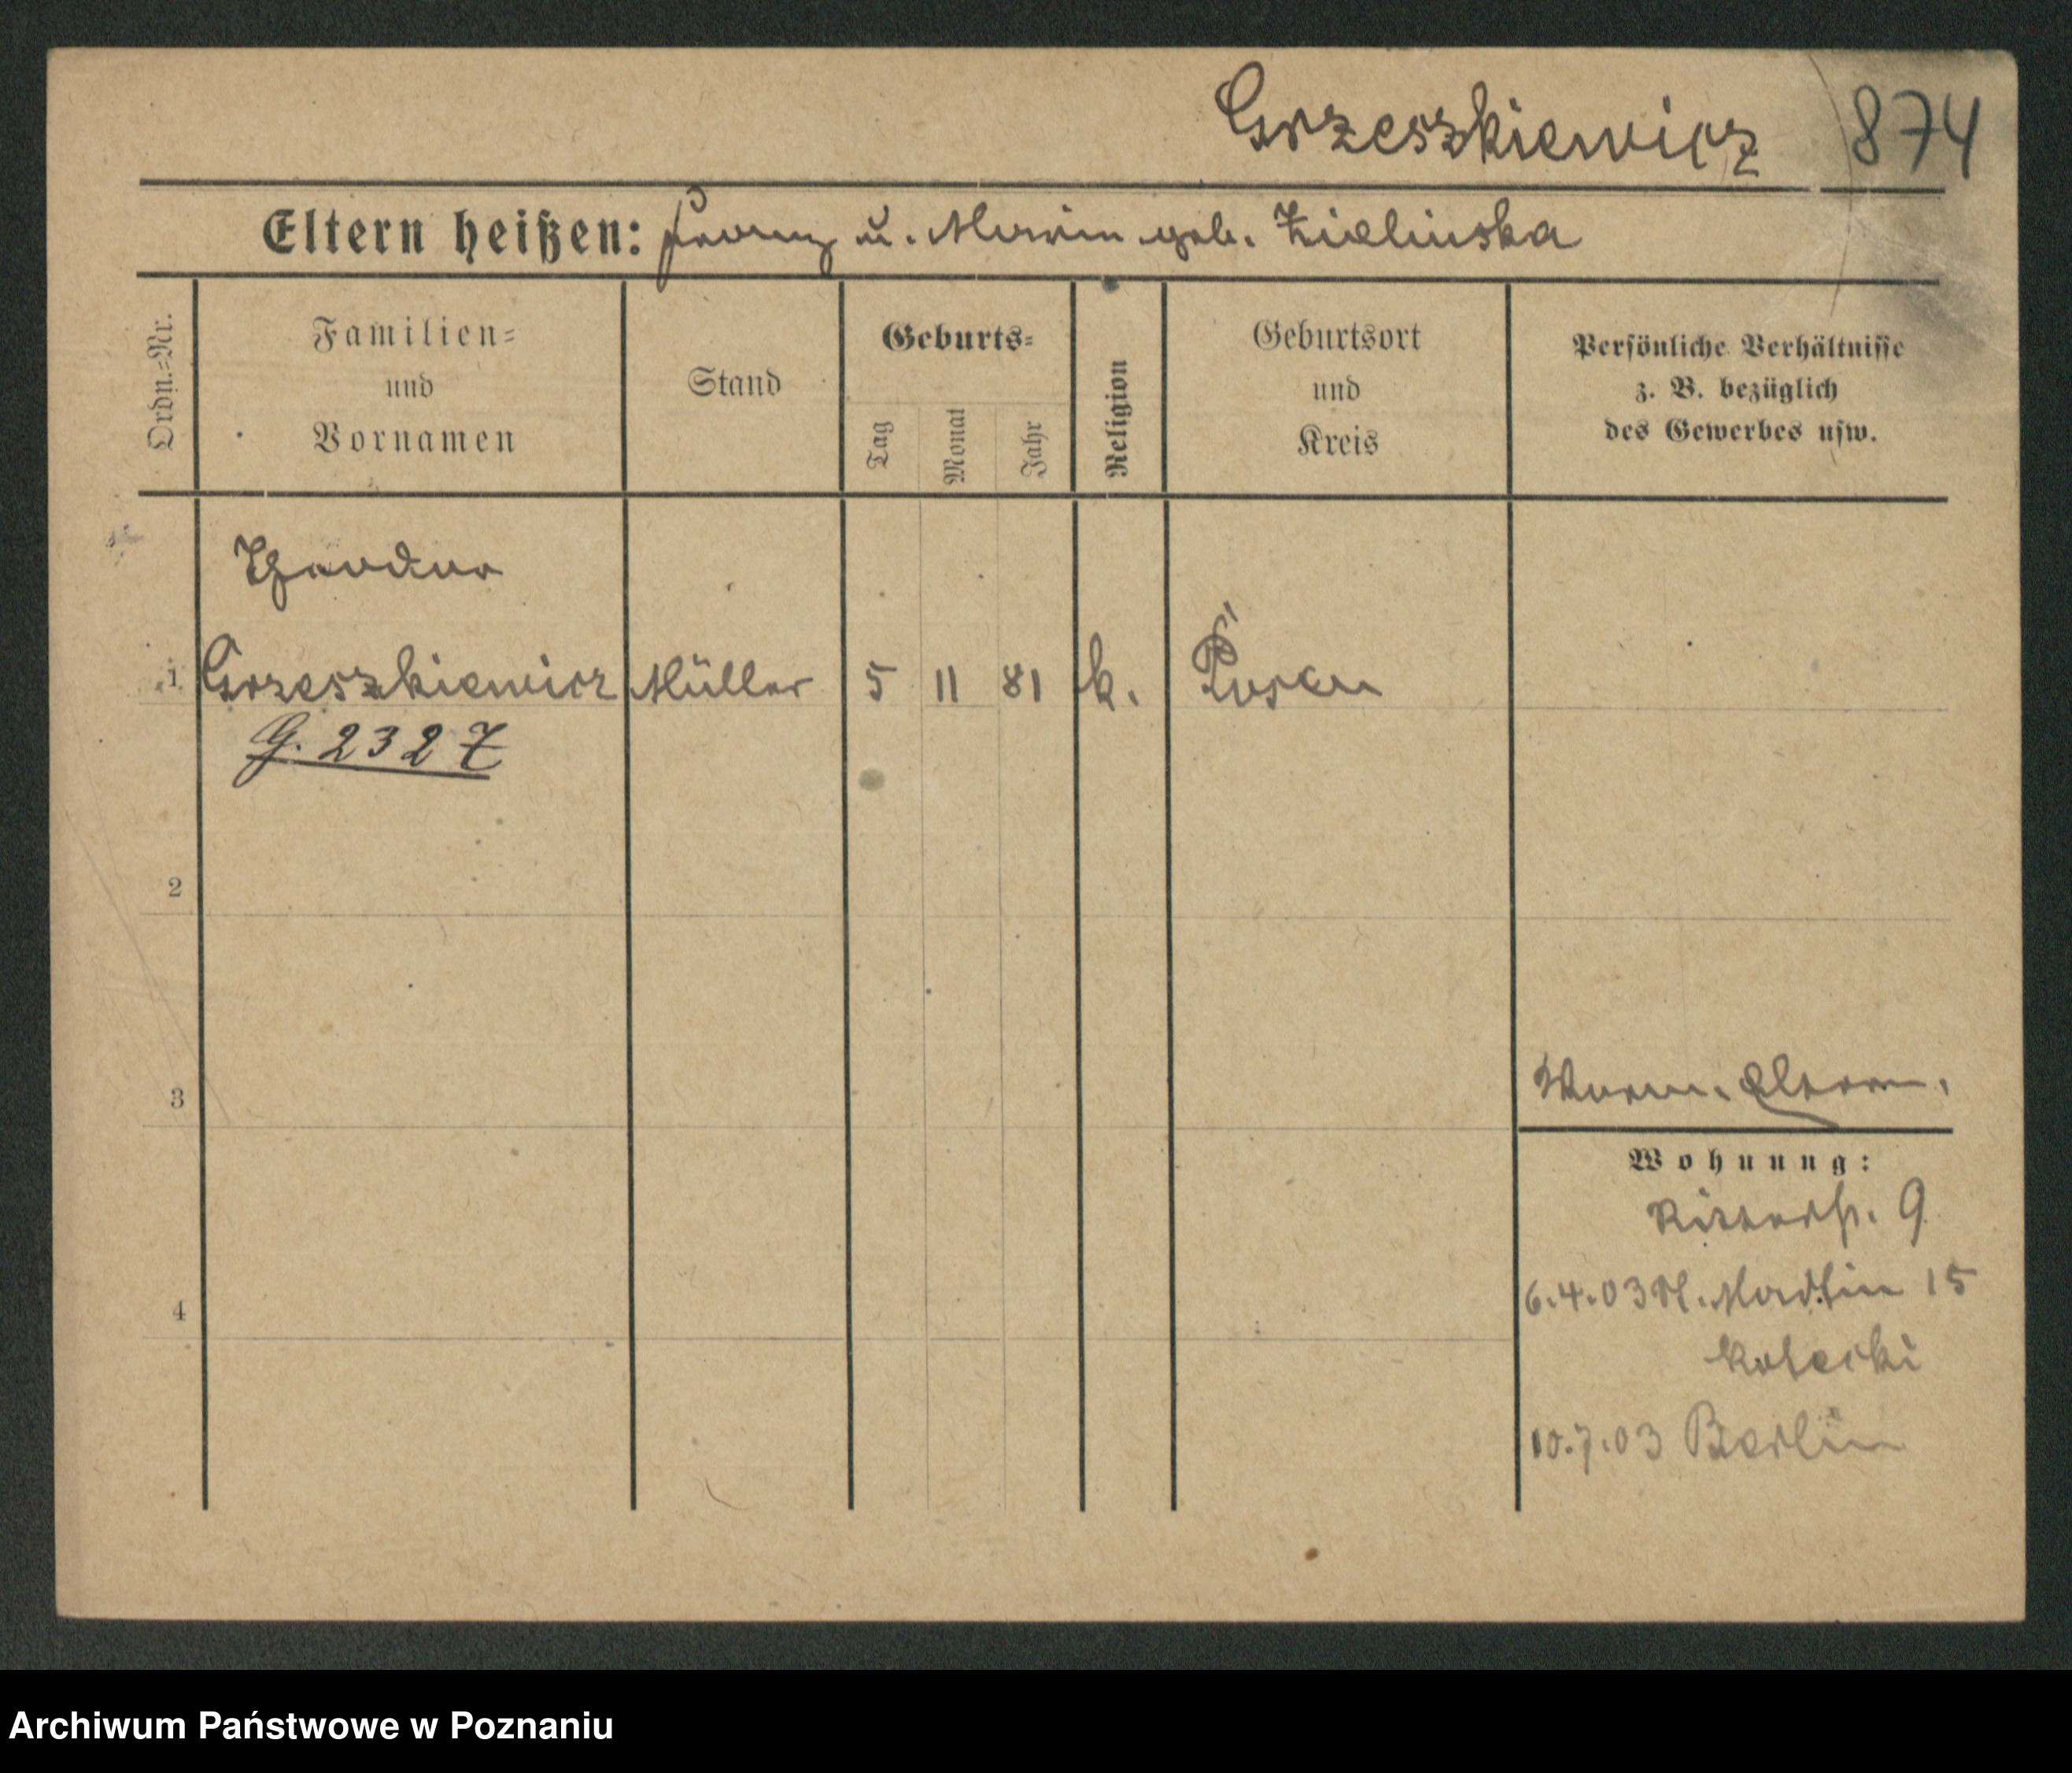 Grzeszkiewicz 874
Eltern heißen: Franz u. Maria geb. Zielinska
Ordn.=Nr.
Familien=
und
Vornamen
Stand
Geburts=
Tag
Monat
Jahr
Religion
Geburtsort
und
Kreis
Persönliche Verhältnisse
z. B. bezüglich
des Gewerbes usw.
Theodor
1 Grzeszkiewicz Müller 5 11 81 k. Posen
G. 2327
2
3
Eltern.
Wohnung:
Ritterstr. 9
4
6.4.03 St. Martin 15
10.7.03 Berlin
Archiwum Państwowe w Poznaniu